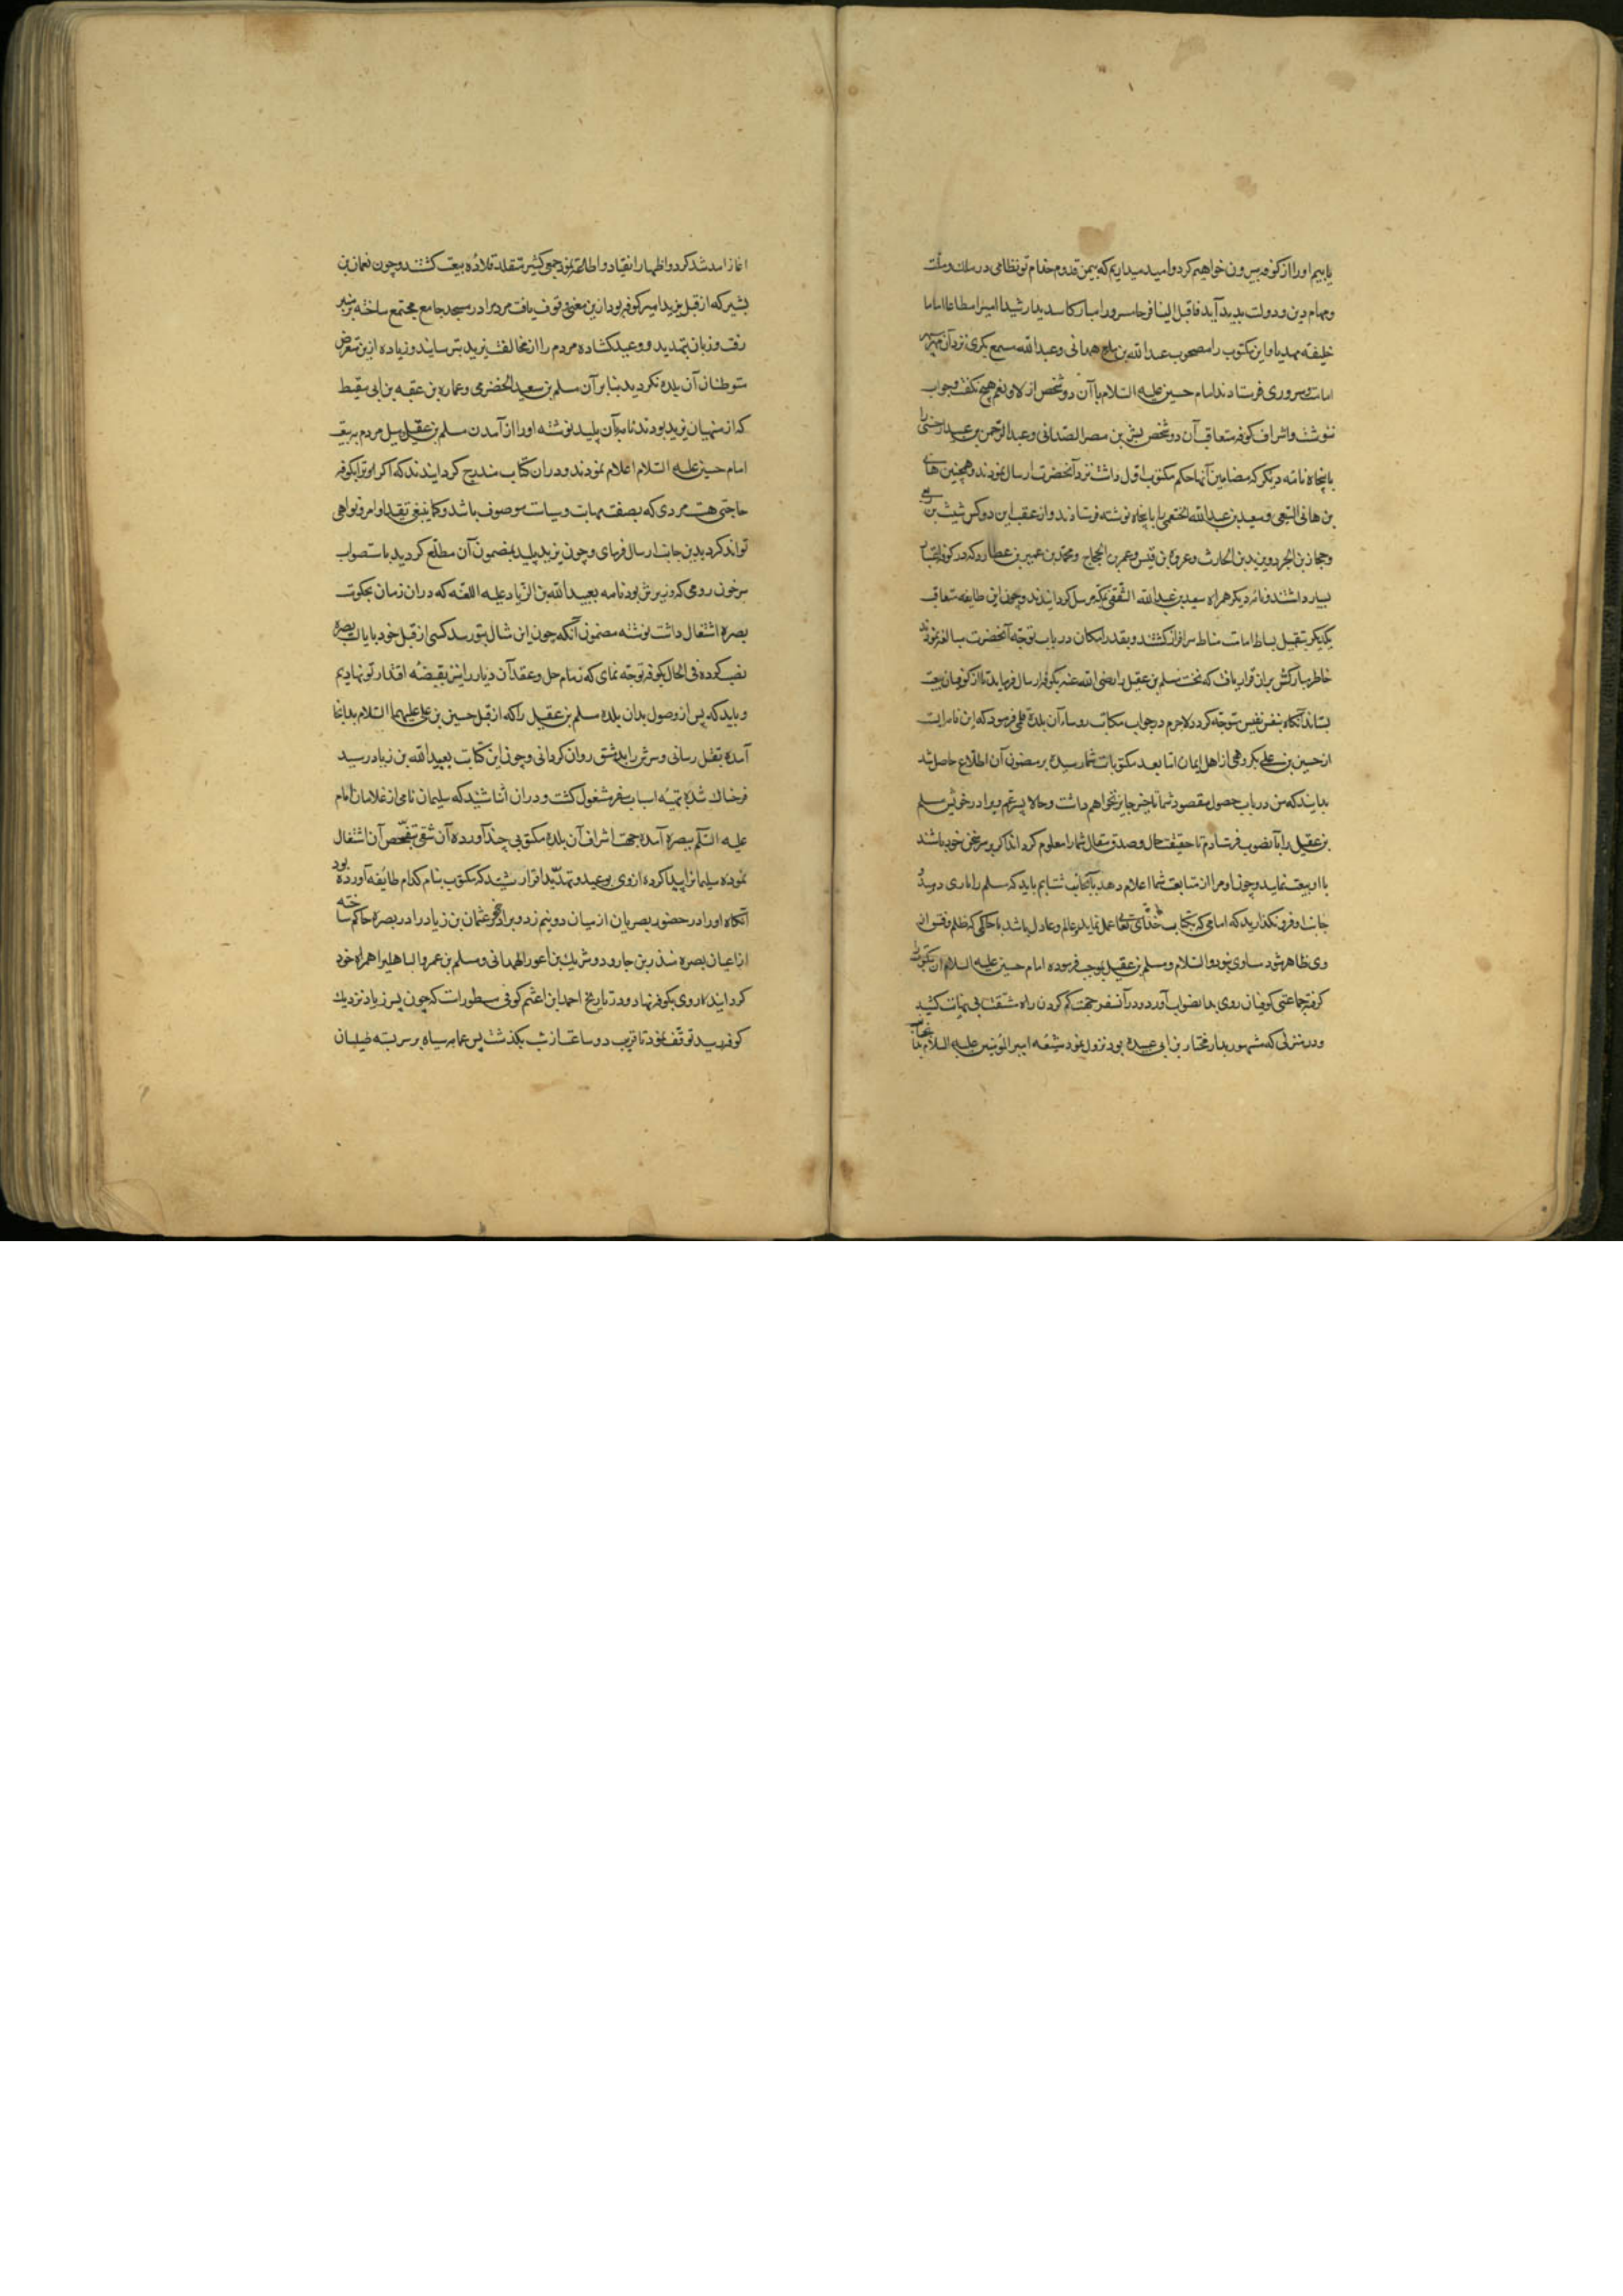 یابیم او را از کوفه بیرون خواهیم کرد و امید میداریم که بیمن قدوم خدام تو نظامی در ملک و ملت
و مهام دین و دولت پدید آید فاقبل الینا فرحا مسرورا مبارکا سدیدا رشیدا امیرا مطاعا اماما
خلیفة مهدیا و این مکتوب را مصحوب عبد الله بن همدانی و عبد الله سمیع بکری نزد آن سپهر
امامت و سروری فرستادند امام حسین علیه السلام با آن دو شخص از لا و نعم هیچ نکفت و جواب
ننوشت و اشراف کوفه متعاقب آن دو شخص بن مصر الصدانی و عبد الرحمن بن عبید ارحبی را
با پنجاه نامه دیکر که مضامین آنها حکم مکتوب اول داشت نزد آنحضرت ارسال نمودند و همچنین هانی
بن هانی السبعی و سعید بن عبد الله الخثعمی را با پنجاه نوشته فرستادند و از عقب این دو کس شیث بن ربعی
و حجاز بن الحر و یزید بن الحارث و عروة بن قیس و عمر بن الحجاج و محمد بن عمیر بن عطارد که در کوفه اعتبار
بسیار داشتند نامه دیکر همراه سعید بن عبد الله الثقفی بمکه مرسل کردانیدند و چون این طایفه متعاقب
یکدیکر بتقبیل بساط امامت مناط سرافراز کشتند و بقدر امکان در باب توجه آنحضرت مبالغه نمودند
خاطر مبارکش بران قرار یافت که نخست مسلم بن عقیل را رضی الله عنه بکوفه ارسال فرماید تا از کوفیان بیعت
بستاند آنکاه بنفس نفیس متوجه کردد لاجرم در جواب مکاتیب روساء آن بلده قلمی فرمود که این نامه ایست
از حسین بن علی بکروهی از اهل ایمان اما بعد مکتوبات شما رسیده بر مضمون آن اطلاع حاصل شد
بدانید که من در باب حصول مقصود شما تاخیر جایز نخواهم داشت و حالا پسر عم و برادر خویش مسلم
بن عقیل را بآنصوب فرستادم تا حقیقت حال و صدق مقال شما را معلوم کرداند اکر بر سر سخن خود باشند
با او بیعت نمایید و چون او مرا از متابعت شما اعلام دهد بآنجانب شتابم باید که مسلم را یاری دهید و
جانب او فرو نکذارید که امامی که بکتاب خدای تعالی عمل نماید و عالم و عادل باشد با حاکمی که ظلم و فسق از
وی ظاهر شود مساوی نبود و السلام و مسلم بن عقیل بموجب فرموده امام حسین علیه السلام آن مکتوب را
کرفته با جماعتی کوفیان روی بدانصواب آورد و در آن سفر جهت کم کردن راه مشقت بی نهایت کشید
و در منزلی که مشهور بدار مختار بن ابی عبیده بود نزول نمود شیعه امیر المؤمنین علیه السلام بدانجانب
اغاز آمد شد کرد و اظهار انقیاد و اطاعت نمود جمعی کثیر متقلد قلاده بیعت کشتند و چون نعمان بن
بشیر که از قبل یزید امیر کوفه بود ازین معنی وقوف یافت مردم را در مسجد جامع مجتمع ساخته بر منبر
رفت و زبان بتهدید و وعید کشاده مردم را از مخالفت یزید بترسانید و زیاده ازین متعرض
متوطنان آن بلده نکردید بنابر آن مسلم بن سعید الحضرمی و عماره بن عقبه بن ابی معیط
که از منهیان یزید بودند نامه بآن پلید نوشته او را از آمدن مسلم بن عقیل و میل مردم به بیعت
امام حسین علیه السلام اعلام نمودند و دران کتاب مندرج کردانیدند که اکر او ترا بکوفه
حاجتی هست مردی که بصفت مهابت و سیاست موصوف باشد و کما ینبغی تنفیذ اوامر و نواهی
تواند کرد بدین جانب ارسال فرمای و چون یزید پلید بمضمون آن مطلع کردید باستصواب
سرخون رومی که وزیرش بود نامه بعبید الله بن الزیاد علیه اللعنه که دران زمان بحکومت
بصره اشتغال داشت نوشته مضمون آنکه چون این مثال بتو رسد کسی از قبل خود بایالت بصره
نصب کرده فی الحال بکوفه توجه نمای که زمام حل و عقد آن دیار را نیز بقبضه اقتدار تو نهادیم
و باید که پس از وصول بدان بلده مسلم بن عقیل را که از قبل حسین بن علی علیهما السلام بدانجا
آمده بقتل رسانی و سرش را بدمشق روان کردانی و چون این کتابت بعبید الله بن زیاد رسید
فرحناک شده بتهیه اسباب سفر مشغول کشت و دران اثنا شنید که سلیمان نامی از غلامان امام
علیه السلم ببصره آمده جهت اشراف آن بلده مکتوبی چند آورده آن شقی بتفحص آن اشتغال
نموده سلیمان را پیدا کرده از وی بوعید و تهدید اقرار شنید که مکتوب بنام کدام طایفه آورده بود
آنکاه او را در حضور بصریان از میان دو نیم زد و برادر خود عثمان بن زیاد را در بصره حاکم ساخته
از اعیان بصره منذر بن جارود و شریک بن اعور الهمدانی و مسلم بن عمرو الباهلی را همراه خود
کردانیده روی بکوفه نهاد و در تاریخ احمد ابن اعثم کوفی مسطورات که چون پسر زیاد نزدیک
کوفه رسید توقف نمود تا قریب دو ساعت از شب بکذشت پس عمامه سیاه بر سر بسته طیلسان